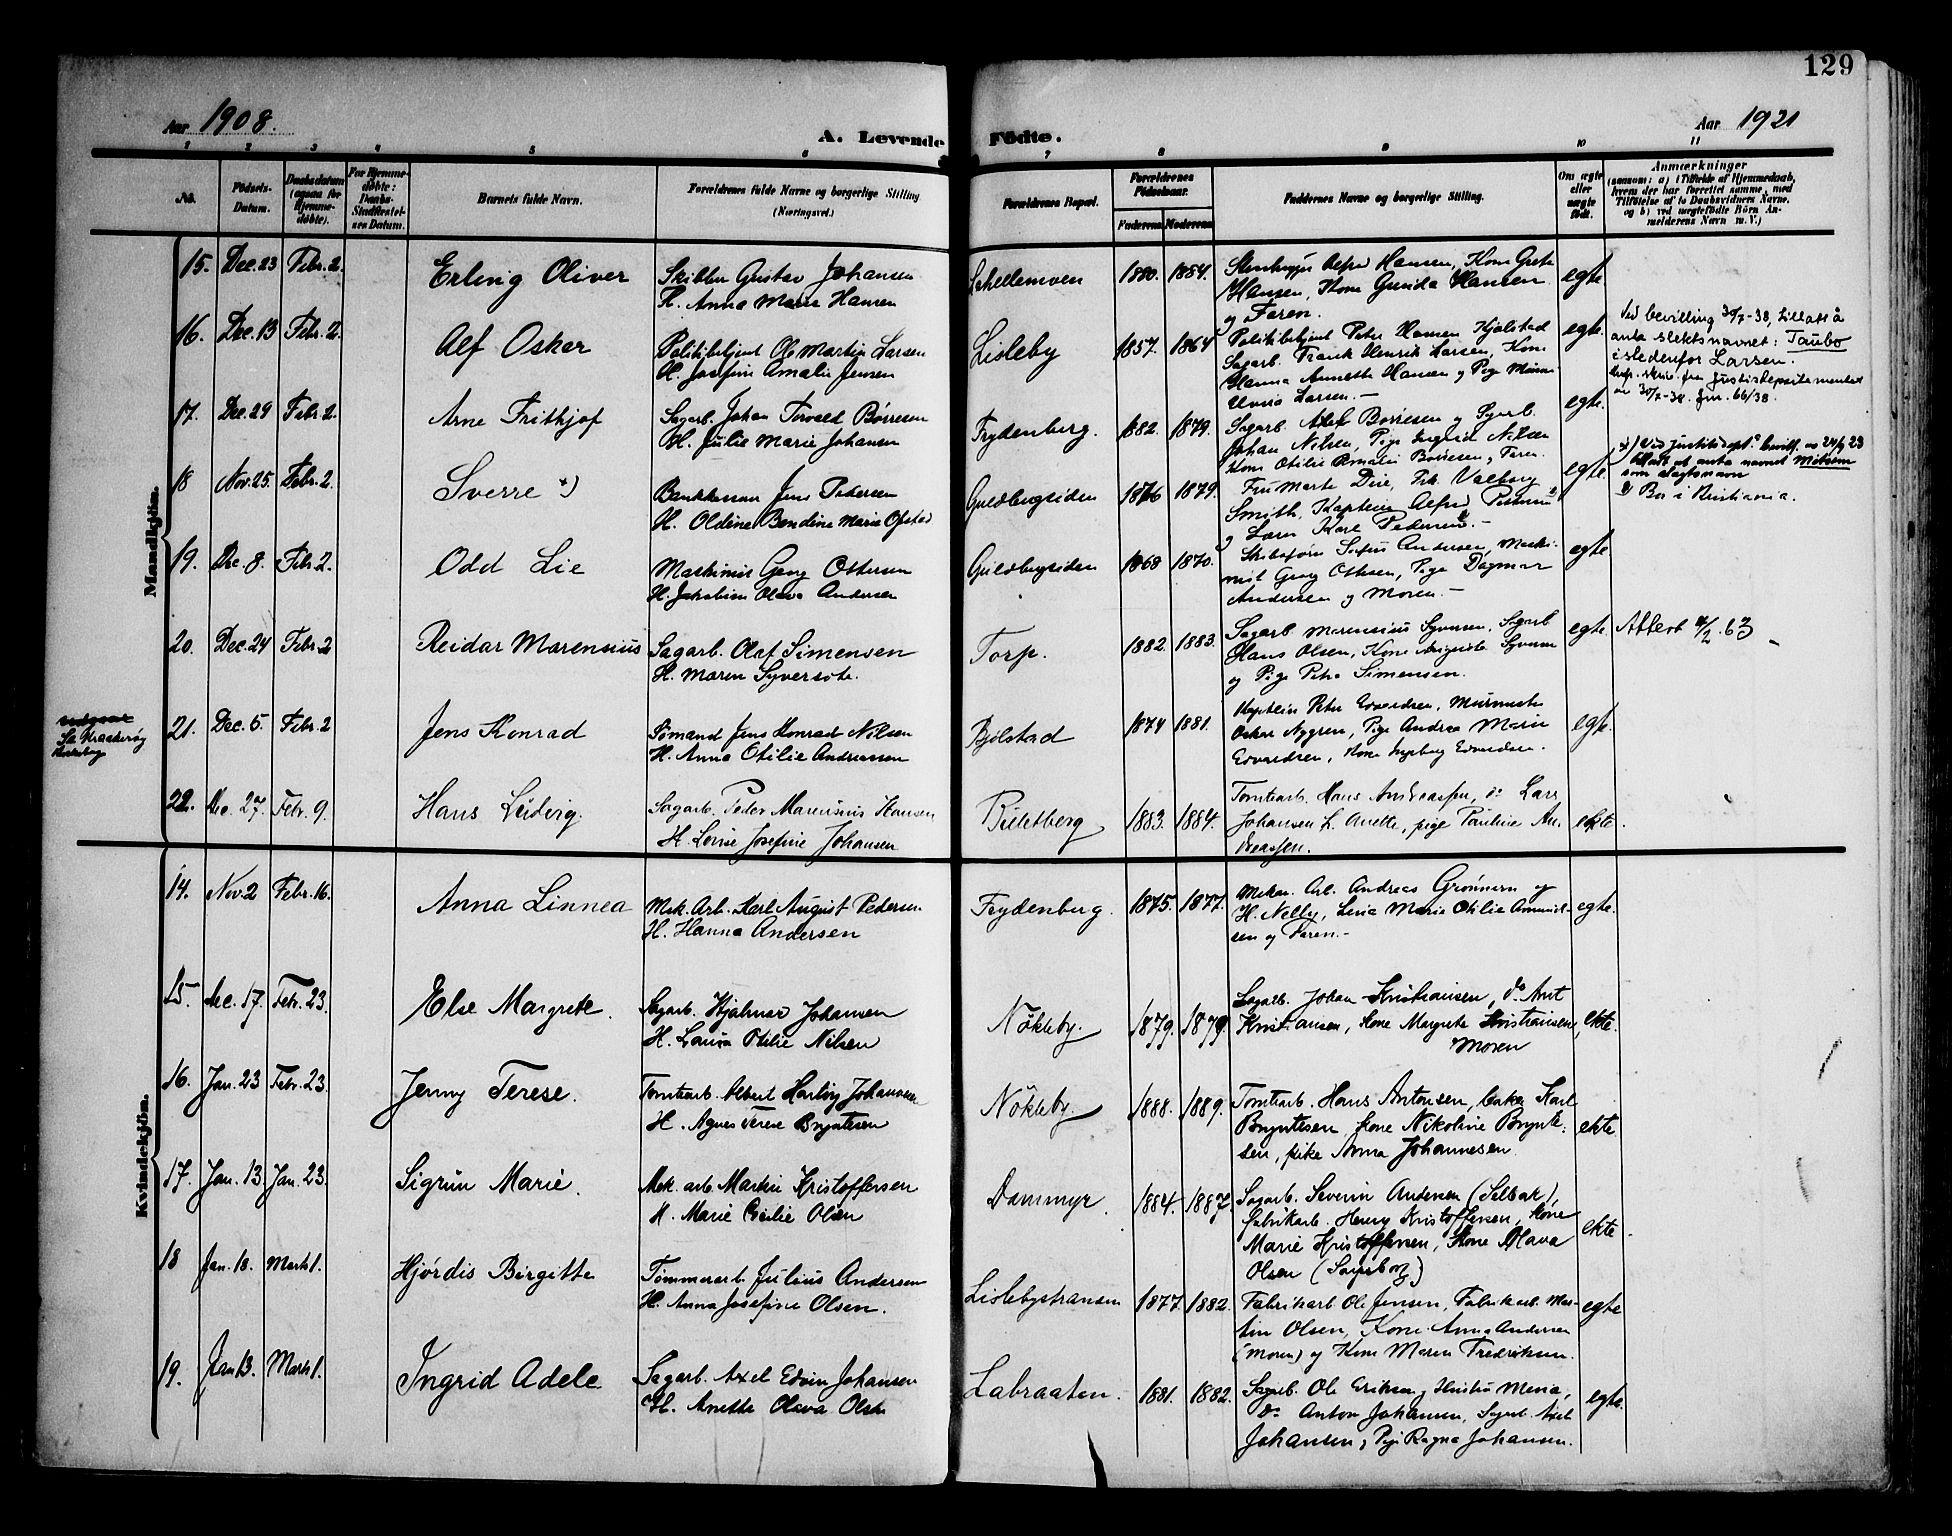 129
Aar 1908.
A. Levende Födte.
Aar 1921
1 2 3 4 5 6 7 8 9 10 11
No.
Födsels-Datum.
Daabsdatum (ogsaa for Hjemmedöbte).
For Hjemmedöbte: Daabs-Stadfæstelses Datum.
Barnets fulde Navn.
Forældrenes fulde Navne og borgerlige Stilling (Næringsvei.)
Forældrenes Bopæl.
Forældrenes Födselsaar.
Faderens Moderens
Faddernes Navne og borgerlige Stilling.
Om ægte eller uægte födt.
Anmærkninger
(saasom: a) i Tilfælde af Hjemmedaab, hvem der har forrettet samme, med Tilföielse af to Daabsvidners Navne, og b) ved uægtefödte Börn Anmelderens Navn m. V.)
Mandkjön.
15. Dec. 23 Febr. 2. Erling Oliver
Skibbr. Gustav Johansen
H. Anna Marie Hansen
1880. 1884.
Hansen, Kone Gunda Hansen
og Faren.
egte
16. Dec. 13 Febr. 2. Alf Oskar
Politibetjent Ole Martin Larsen
H. Josefine Amalie Jensen
Lisleby 1857. 1864
Politibetjent Peter Hansen Kjølstad
Sagarb. Frank Henrik Larsen, Kone
Hanna Annette Hansen og Pige
Larsen. —
egte.
Ved bevilling 30/7-38, tillatt å
anta slektsnavnet: Taubo
istedenfor Larsen.
30/7-38. Jnr. 66/38.
17. Dec. 29 Febr. 2. Arne Frithjof
Sagarb. Johan Torvald Børresen
H. Julie Marie Johansen
Frydenberg. 1882. 1879.
Sagarb. Adolf Børresen og Sagarb.
Johan Nilsen, Pige Ingrid Nilsen
Kone Otilie Amalie Børresen, Faren.
egte.
18 Nov. 25. Febr. 2. Sverre x)
Jens Pedersen
H. Oldine Bendine Marie
Guldbergsiden 1876 1879.
Fru Marte Due, Frk. Valborg
Smith, Kaptein Alfred
og Karl Pedersen. —
egte.
x) Ved Justitsdept.s bevill. av 24/9 23
tillatt at anta navnet
som slegtsnavn
Bor i Kristiania.
19. Dec. 8. Febr. 2. Odd Lie
Maskinist Georg Ottersen
H. Jakobine Olava Andersen
Guldbergsiden 1868 1870.
Skibsfører Andersen, Maski-
nist Georg Ottersen, Pige Dagmar
Andersen og Moren. —
egte
20. Dec. 24 Febr. 2 Reidar Marensius
Sagarb. Olaf Simensen
H. Maren Syversdtr.
Torp. 1882. 1883.
Sagarb. Marensius Syversen, Sagarb
Hans Olsen, Kone Syversen
og Pige Petra Simensen.
egte. Attest /2. 63
21. Dec. 5 Febr. 2 Jens Konrad
Sømand Jens Konrad Nilsen
H. Anna Otilie Andreassen
Bjølstad 1874 1881.
Kaptein Peter Edvardsen, Murmester
Oskar Nygren, Pige Andrea Marie
Edvardsen, Kone Ingeborg Edvardsen.
egte.
22. Dec. 27. Febr. 9. Hans Ludvig.
Sagarb. Peder Marensius Hansen
H. Lovise Josefine Johansen
1883. 1884.
Tomtearb. Hans Andreassen, do Lars
Johansen H. Anette, pige Pauline An-
dreassen.
ekte.
Kvindekjön.
14. Nov. 2 Febr. 16. Anna Linnea
Mek. Arb. Karl August Pedersen.
H. Hanna Andersen
Frydenberg. 1875. 1877.
Mekan. Arb. Andreas Grønnern og
H. Nelly, Marie Otilie Amund-
sen og Faren. —
egte.
15. Dec. 17. Febr. 23. Else Margrete.
Sagarb. Hjalmar Johansen
H. Laura Otilie Nilsen
Nökleby. 1879. 1879.
Sagarb. Johan Kristiansen, do Arnt
Kristiansen, Kone Margrete Kristiansen,
Moren
ekte.
16. Jan. 23 Febr. 23. Jenny Terese.
Tomtearb. Albert Hartvig Johansen
H. Agnes Terese Bryntesen
Nökleby. 1888. 1889.
Tomtearb. Hans Antonsen, baker Karl
Bryntesen, kone Nikoline Brynte-
sen, pike Anna Johannesen
ekte.
17. Jan. 13. Jan. 23. Sigrun Marie.
Mek. arb. Martin Kristoffersen
H. Marie Cecilie Olsen
Dammyr. 1884. 1887.
Sagarb. Severin Andersen (Selbak),
fabrikarb. Henry Kristoffersen, Kone
Marie Kristoffersen, Kone Olava
Olsen (Sarpsborg)
ekte.
18 Jan. 18. Marts 1. Hjørdis Birgitte
Tømmerarb. Julius Andersen
H. Anna Josefine Olsen.
Lislebystranden 1877. 1882.
Fabrikarb. Ole Jensen, Fabrikarb. Mar-
tin Olsen, Kone Anna Andersen
(Moren) og Kone Maren Fredriksen.
egte
19. Jan 13. Marts 1. Ingrid Adele
Sagarb. Axel Edvin Johansen
H. Anette Olava Olsen
Labraaten. 1881. 1882.
Sagarb. Ole Eriksen og Hustru Maria,
do Anton Johansen, Sagarb. Axel
Johansen, Pige Ragna Johansen.
egte.